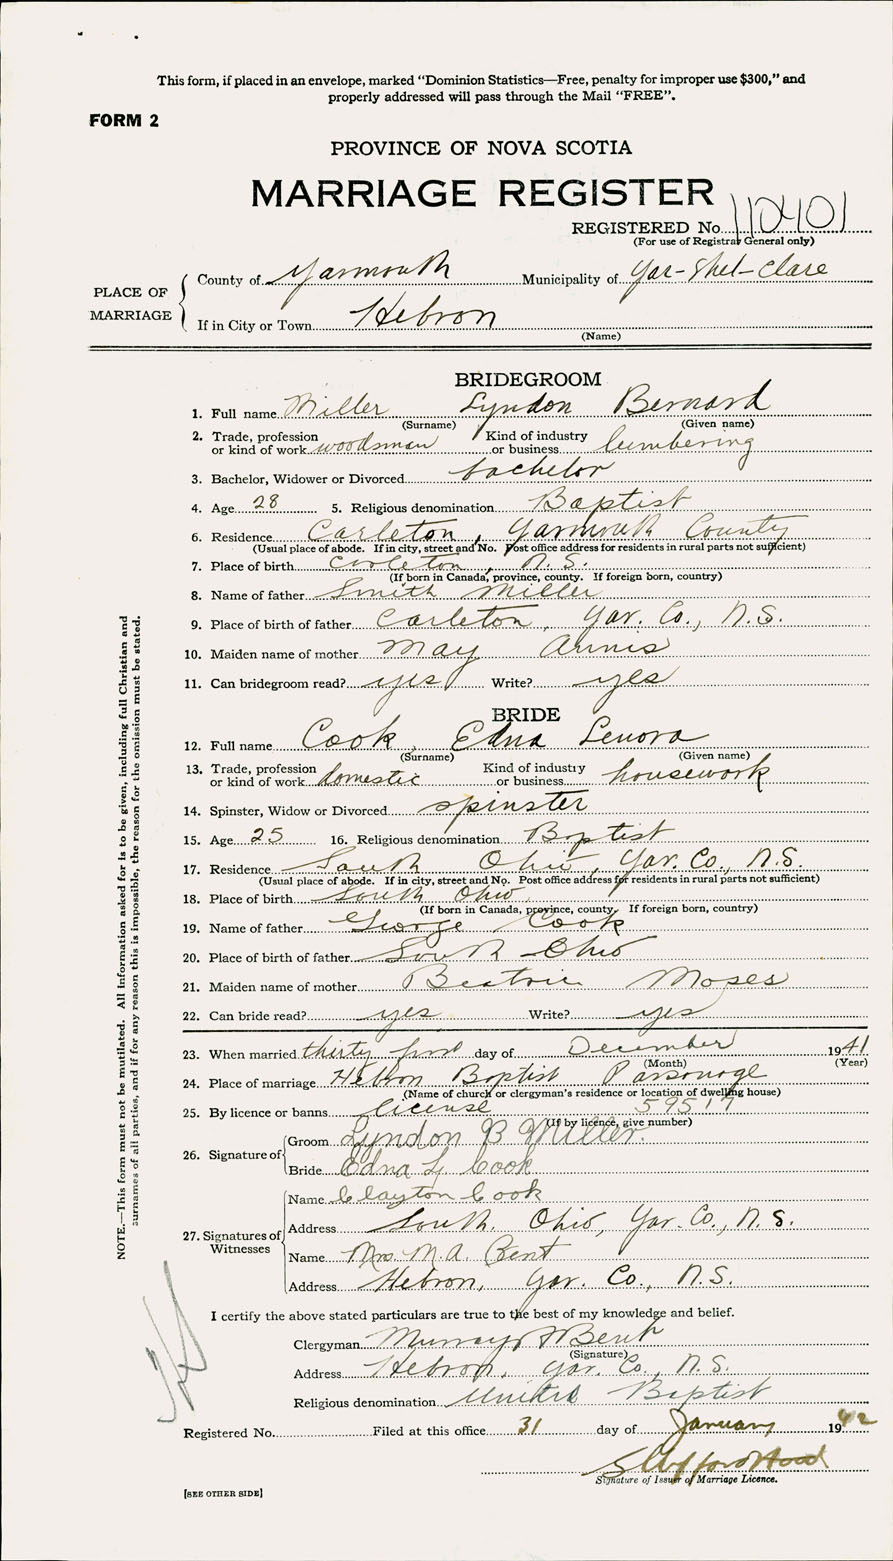 This form, if placed in an envelope, marked “Dominion Statistics—Free, penalty for improper use $300,” and
properly addressed will pass through the Mail “FREE”.
FORM 2
PROVINCE OF NOVA SCOTIA
MARRIAGE REGISTER
REGISTERED No. 110401
(For use of Registrar General only)
PLACE OF MARRIAGE
County of Yarmouth Municipality of Yar-Shel-Clare
If in City or Town Hebron
(Name)
BRIDEGROOM
1. Full name Miller Lyndon Bernard
(Surname) (Given name)
2. Trade, profession or kind of work woodsman Kind of industry or business lumbering
3. Bachelor, Widower or Divorced bachelor
4. Age 28 5. Religious denomination Baptist
6. Residence Carleton, Yarmouth County
(Usual place of abode. If in city, street and No. Post office address for residents in rural parts not sufficient)
7. Place of birth Carleton, N.S.
(If born in Canada, province, county. If foreign born, country)
8. Name of father Smith Miller
9. Place of birth of father Carleton, Yar. Co., N.S.
10. Maiden name of mother May Annis
11. Can bridegroom read? yes Write? yes
BRIDE
12. Full name Cook, Edna Lenora
(Surname) (Given name)
13. Trade, profession or kind of work domestic Kind of industry or business housework
14. Spinster, Widow or Divorced spinster
15. Age 25 16. Religious denomination Baptist
17. Residence South Ohio, Yar. Co., N.S.
(Usual place of abode. If in city, street and No. Post office address for residents in rural parts not sufficient)
18. Place of birth South Ohio
(If born in Canada, province, county. If foreign born, country)
19. Name of father George Cook
20. Place of birth of father South Ohio
21. Maiden name of mother Beatrice Moses
22. Can bride read? yes Write? yes
23. When married thirty first day of December 1941
(Month) (Year)
24. Place of marriage Hebron Baptist Parsonage
(Name of church or clergyman's residence or location of dwelling house)
25. By licence or banns license 59517
(If by licence, give number)
26. Signature of
Groom Lyndon B Miller.
Bride Edna L Cook
27. Signatures of Witnesses
Name Clayton Cook
Address South Ohio, Yar. Co., N.S.
Name Mrs. M.A. Bent
Address Hebron, Yar. Co., N.S.
I certify the above stated particulars are true to the best of my knowledge and belief.
Clergyman Murray A Bent
(Signature)
Address Hebron, Yar. Co., N.S.
Religious denomination United Baptist
Registered No. Filed at this office 31 day of January 1942
Hood
Signature of Issuer of Marriage Licence.
[SEE OTHER SIDE]
NOTE.—This form must not be mutilated. All Information asked for is to be given, including full Christian and
surnames of all parties, and if for any reason this is impossible, the reason for the omission must be stated.